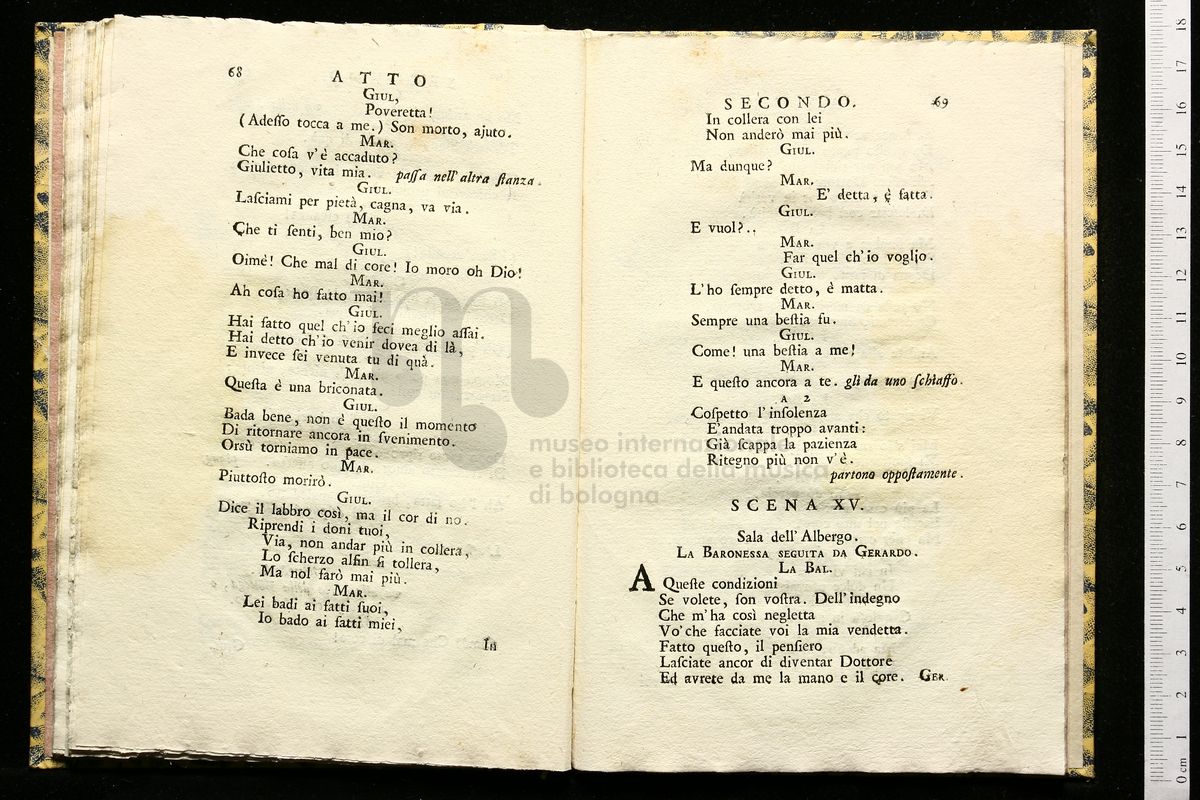 68
ATTO
GIUL,
Poveretta!
(Adeſſo tocca a me.) Son morto, ajuto.
MAR.
Che coſa v'è accaduto?
Giulietto, vita mia. paſſa nell'altra ſtanza.
GIUL.
Laſciami per pietà, cagna, va via.
MAR.
Che ti ſenti, ben mio?
GIUL.
Oimè! Che mal di core! Io moro oh Dio!
MAR.
Ah coſa ho fatto mai!
GIUL.
Hai fatto quel ch'io feci meglio aſſai.
Hai detto ch'io venir dovea di là,
E invece ſei venuta tu di quà.
MAR.
Queſta è una briconata.
GIUL.
Bada bene, non è queſto il momento
Di ritornare ancora in ſvenimento.
Orsù torniamo in pace.
MAR.
Piuttoſto morirò.
GIUL.
Dice il labbro così, ma il cor di no.
Riprendi i doni tuoi,
Via, non andar più in collera,
Lo ſcherzo alfin ſi tollera,
Ma nol farò mai più.
MAR.
Lei badi ai fatti ſuoi,
Io bado ai fatti miei,
In
SECONDO.
69
In collera con lei
Non anderò mai più.
GIUL.
Ma dunque?
MAR.
E' detta, è fatta.
GIUL.
E vuol?..
MAR.
Far quel ch'io voglio.
GIUL.
L'ho ſempre detto, è matta.
MAR.
Sempre una beſtia fu.
GIUL.
Come! una beſtia a me!
MAR.
E queſto ancora a te. gli da uno ſchiaffo.
A 2
Coſpetto l'inſolenza
E'andata troppo avanti:
Già ſcappa la pazienza
Ritegno più non v'è.
partono oppoſtamente.
SCENA XV.
Sala dell'Albergo.
LA BARONESSA SEGUITA DA GERARDO.
LA BAL.
A Queſte condizioni
Se volete, ſon voſtra. Dell'indegno
Che m'ha così negletta
Vo'che facciate voi la mia vendetta.
Fatto queſto, il penſiero
Laſciate ancor di diventar Dottore
Ed avrete da me la mano e il core. GER.
museo internazionale
e biblioteca della musica
di bologna
0 cm 1 2 3 4 5 6 7 8 9 10 11 12 13 14 15 16 17 18